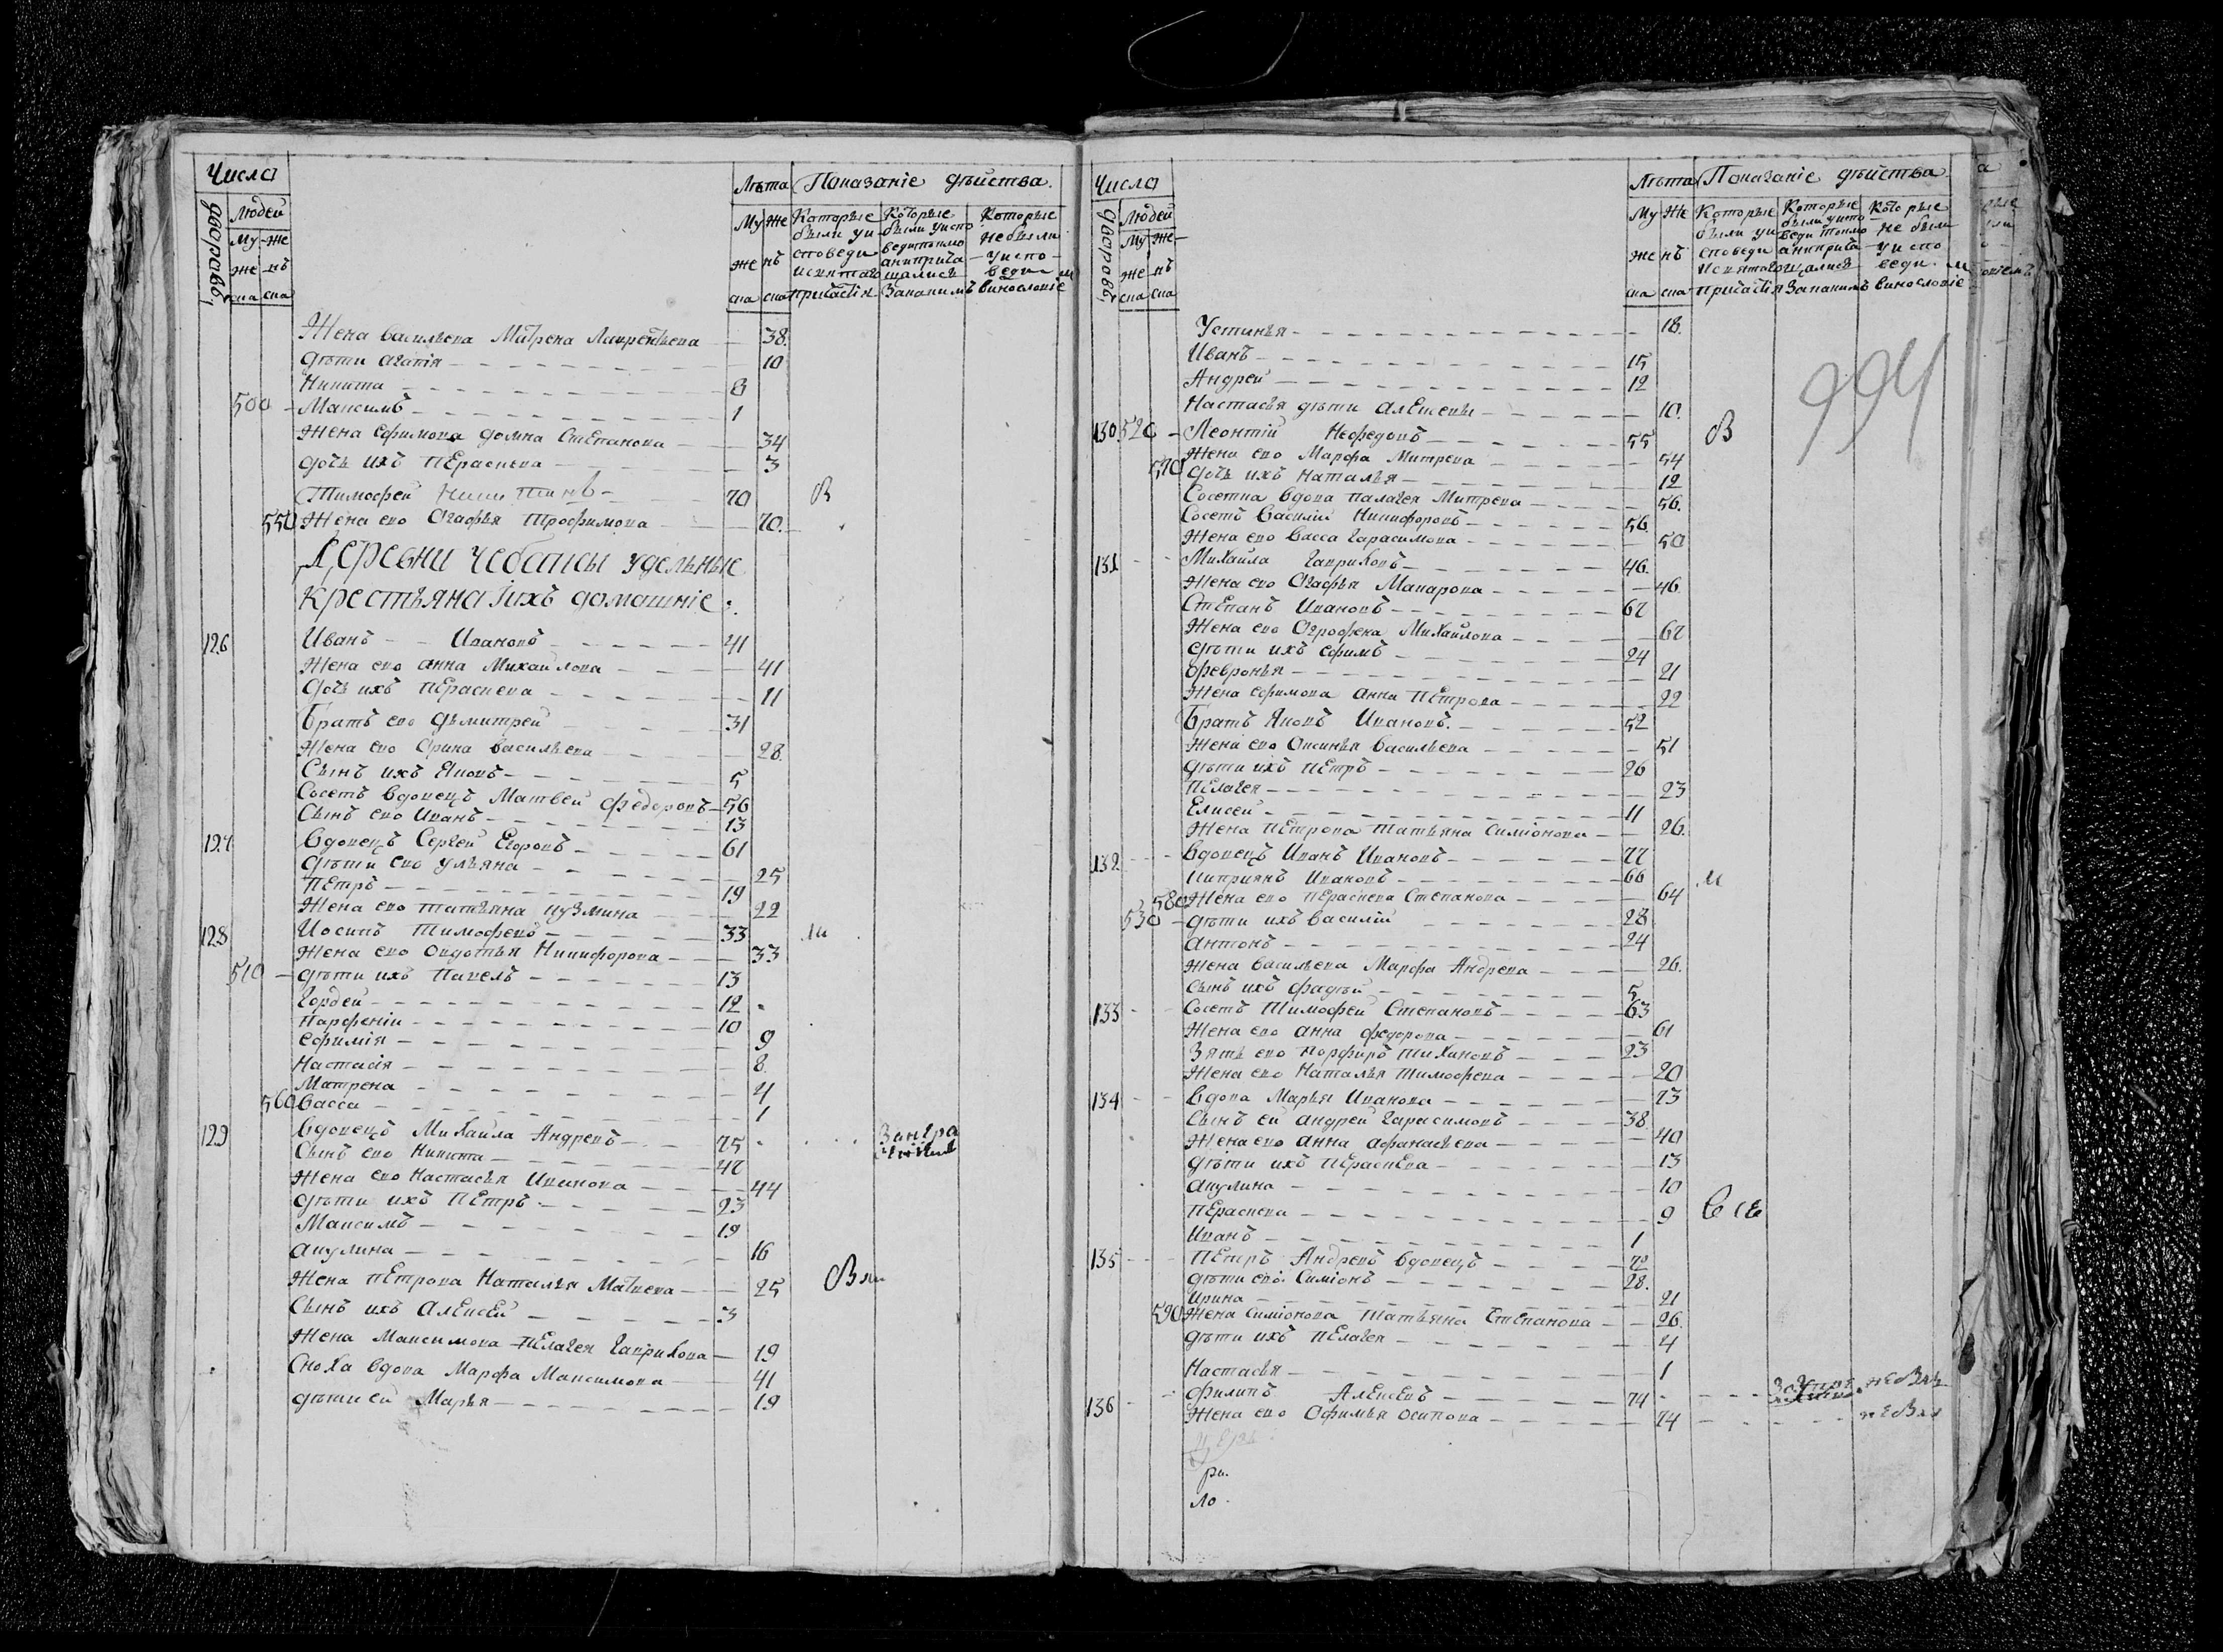 Числа
Лѣта Показаніе дѣйства.
дворовъ
Людей
Му Же
Которые Которые Которые
были уи были уиспо не были
Му Же
веди токмо
же нъ
споведи анеприча у испо
же нъ
исвятаго щалися веди и
ска ска
ска ска причастія Закакимъ винословіе
Жена васильева Митрена Лаврентьева 38.
дѣти агапія 10
Никита 8
500 Максимъ 1
Жена Ефимова домна Степанова 34
дочь ихъ Пераскева 3
Тимофей Никитинъ 70 В
550 Жена ево Огафья Трофимова 70.
Деревни Чебаксы удельные
крестьяна Iихъ домашніе:
126 Иванъ Ивановъ 41
Жена ево анна Михайлова 41
дочь ихъ Пераскева 11
Братъ ево дѣмитрей 31
Жена ево Орина васильева 28.
Сынъ ихъ Яковъ 5
Сосетъ вдовецъ Матвей федоровъ 56
Сынъ ево Иванъ 13
127 вдовецъ Сергей Егоровъ 61
дѣти ево ульяна 25
Петръ 19
Жена ево татьяна кузмина 22
128 Иосипъ Тимофеевъ 33 ли
Жена ево Овдотья Никифорова 33
510 дѣти ихъ Павелъ 13
Гордей 12
Парфеніи 10
Ефимія 9
Настасія 8.
Матрена 4
560 васса 1
129 вдовецъ Михаила Андреевъ 75
Сынъ ево Никита 47
Жена ево Настасья Иванова 44
дѣти ихъ Петръ 23
Максимъ 19
акулина 16
Жена петрова Наталья Матвева 25
Сынъ ихъ Алексей 3
Жена Максимова Пелагея Гаврилова 19
Сноха вдова Марфа Максимова 41
дѣти ей Марья 19
Числа
Лѣта Показаніе дѣйства.
дворовъ
Людей
Му Же
Которые Которые Которые
Му Же
были уи были уиспо не были
веди токмо
же нъ
споведи анеприча у испо
же нъ
исвятаго щалися веди. и
ска ска
ска ска причастія Закакимъ винословіе
Устинья 18.
Иванъ 15
Андрей 12
Настасья дѣти алексевы 10.
994
130 520 Леонтій Нефедовъ 55 В
Жена ево Марфа Митрева 54
570 дочь ихъ Наталья 12
Сосетка вдова палагея Митрева 56.
Сосетъ василий Никифоровъ 56.
Жена ево васса Гарасимова 50
131 Михайла Гавриловъ 46.
Жена ево Огафья Макарова 46
Степанъ Ивановъ 67
Жена ево Огрофена Михайлова 67
дѣти ихъ Ефимъ 24
февронья 21
Жена Ефимова анна Петрова 22
Братъ Яковъ Ивановъ. 52
Жена ево Оксинья васильева 51
дѣти ихъ петръ 26
Пелагея 23
Елисей 11
Жена Петрова татьяна Симіонова 26.
132 вдовецъ Иванъ Ивановъ 77
Киприянъ Ивановъ 66
580 Жена ево Пераскева Степанова 64
530 дѣти ихъ василій 28
антонъ 24
Жена васильева Марфа Андрева 26.
Сынъ ихъ фадѣй 5
133 Сосетъ Тимофей Степановъ 63
Жена ево анна федорова 61
Зять ево порфиръ тихановъ 23
Жена ево Наталья тимофева 20
134 вдова Марья Иванова 73
Сынъ ей андрей Гарасимовъ 38
Жена ево анна афанасьева 40
дѣти ихъ Пераскева 13
акулина 10
Пераскева 9 Все
Иванъ 1
135 Петръ Андревъ вдовецъ
дѣти ево: Симіонъ 28.
Ирина 21
590 Жена Симіонова Татьяна Степанова 26.
дѣти ихъ Пелагея 4
Настасья 1
136 филипъ Алексевъ 74
Жена ево Офимья Осипова 74
ри.
ло.